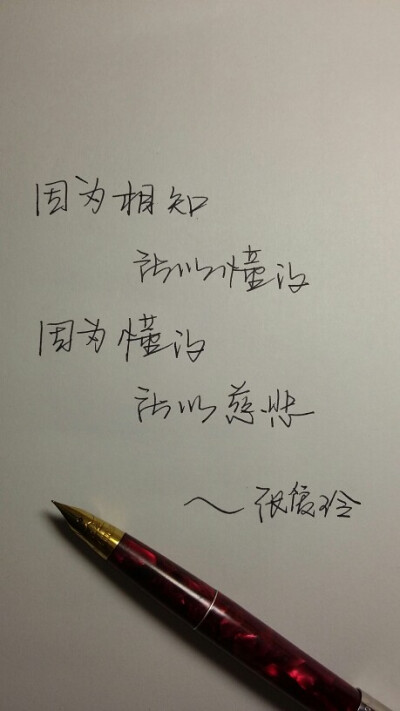 因为相知
所以懂得
因为懂得
所以慈悲
～张爱玲